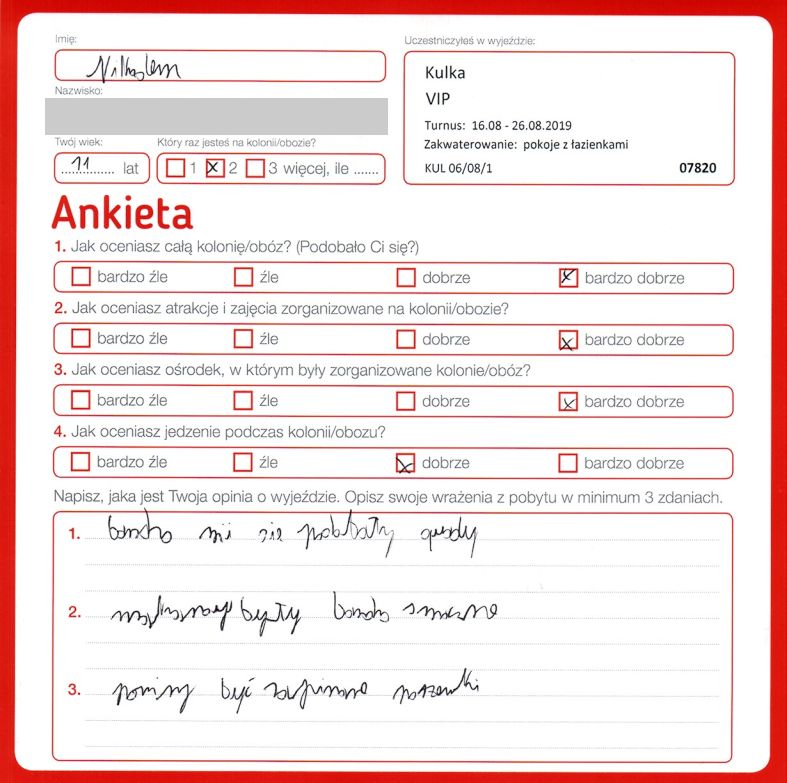 Imię:
Uczestniczyłeś w wyjeździe:
Kulka
VIP
Turnus: 16.08 - 26.08.2019
Zakwaterowanie: pokoje z łazienkami
KUL 06/08/1 07820
Nazwisko:
Twój wiek: Który raz jesteś na kolonii/obozie?
11 lat 1 x 2 3 więcej, ile .......
Ankieta
1. Jak oceniasz całą kolonię/obóz? (Podobało Ci się?)
bardzo źle źle dobrze x bardzo dobrze
2. Jak oceniasz atrakcje i zajęcia zorganizowane na kolonii/obozie?
bardzo źle źle dobrze x bardzo dobrze
3. Jak oceniasz ośrodek, w którym były zorganizowane kolonie/obóz?
bardzo źle źle dobrze x bardzo dobrze
4. Jak oceniasz jedzenie podczas kolonii/obozu?
bardzo źle źle x dobrze bardzo dobrze
Napisz, jaka jest Twoja opinia o wyjeździe. Opisz swoje wrażenia z pobytu w minimum 3 zdaniach.
1. mi sie
2. smaczne
3. być poszewki